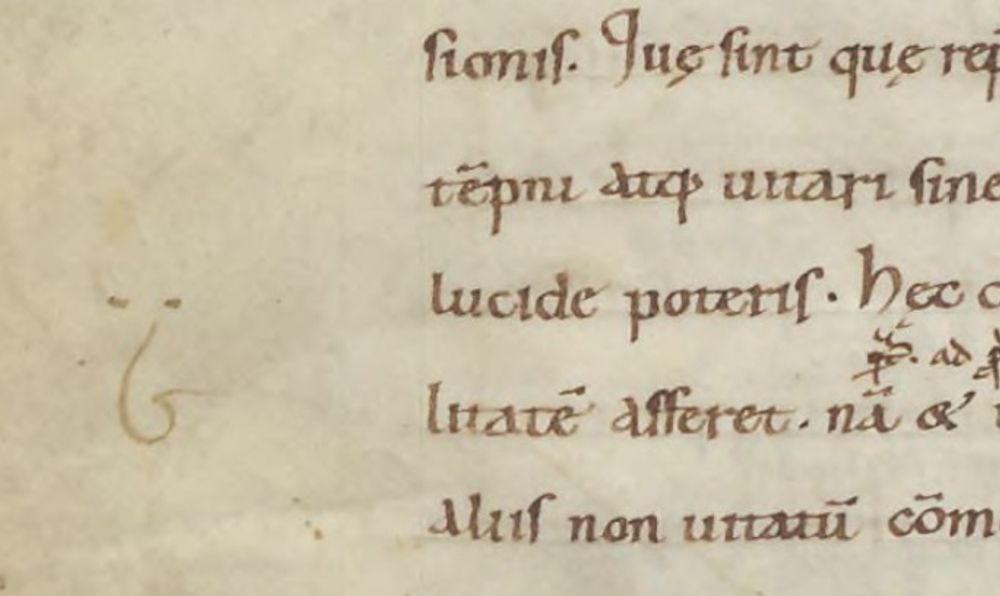 sionis. Quę sint quę rep̄
tēpni atq uitari sine
lucide poteris. hęc c
p̄s. ad
litatē afferet. nā &
aliis non uitatū cōm